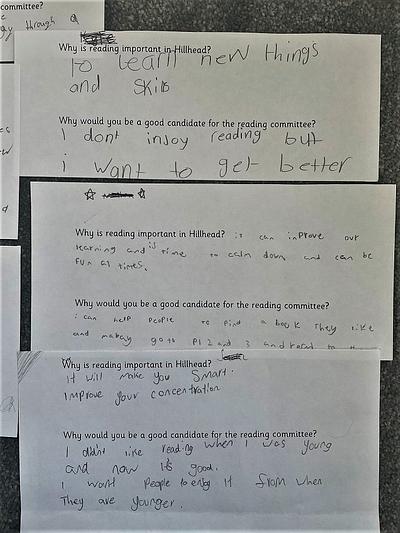 committee?
through a
Why is reading important in Hillhead?
to learn new things
and skills
Why would you be a good candidate for the reading committee?
I dont injoy reading but
i want to get better
Why is reading important in Hillhead? it can improve our
learning and is time to calm down and can be
fun at times.
Why would you be a good candidate for the reading committee?
i can help people to find a book they like
and go to P1 2 and 3 and read to
Why is reading important in Hillhead?
it will make you smart.
improve your concentration
Why would you be a good candidate for the reading committee?
I didnt like reading when I was young
and now its good.
I want people to enjoy it from when
They are younger.